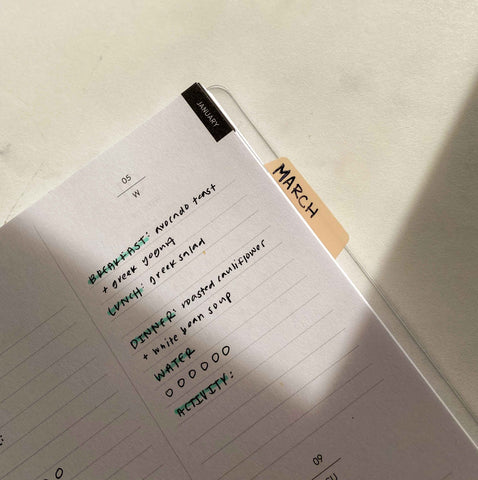 JANUARY
MARCH
05
W
BREAKFAST: avocado toast
+ greek yogurt
LUNCH: greek salad
DINNER: roasted cauliflower
+ white bean soup
WATER
OOOOOO
ACTIVITY:
09
SU